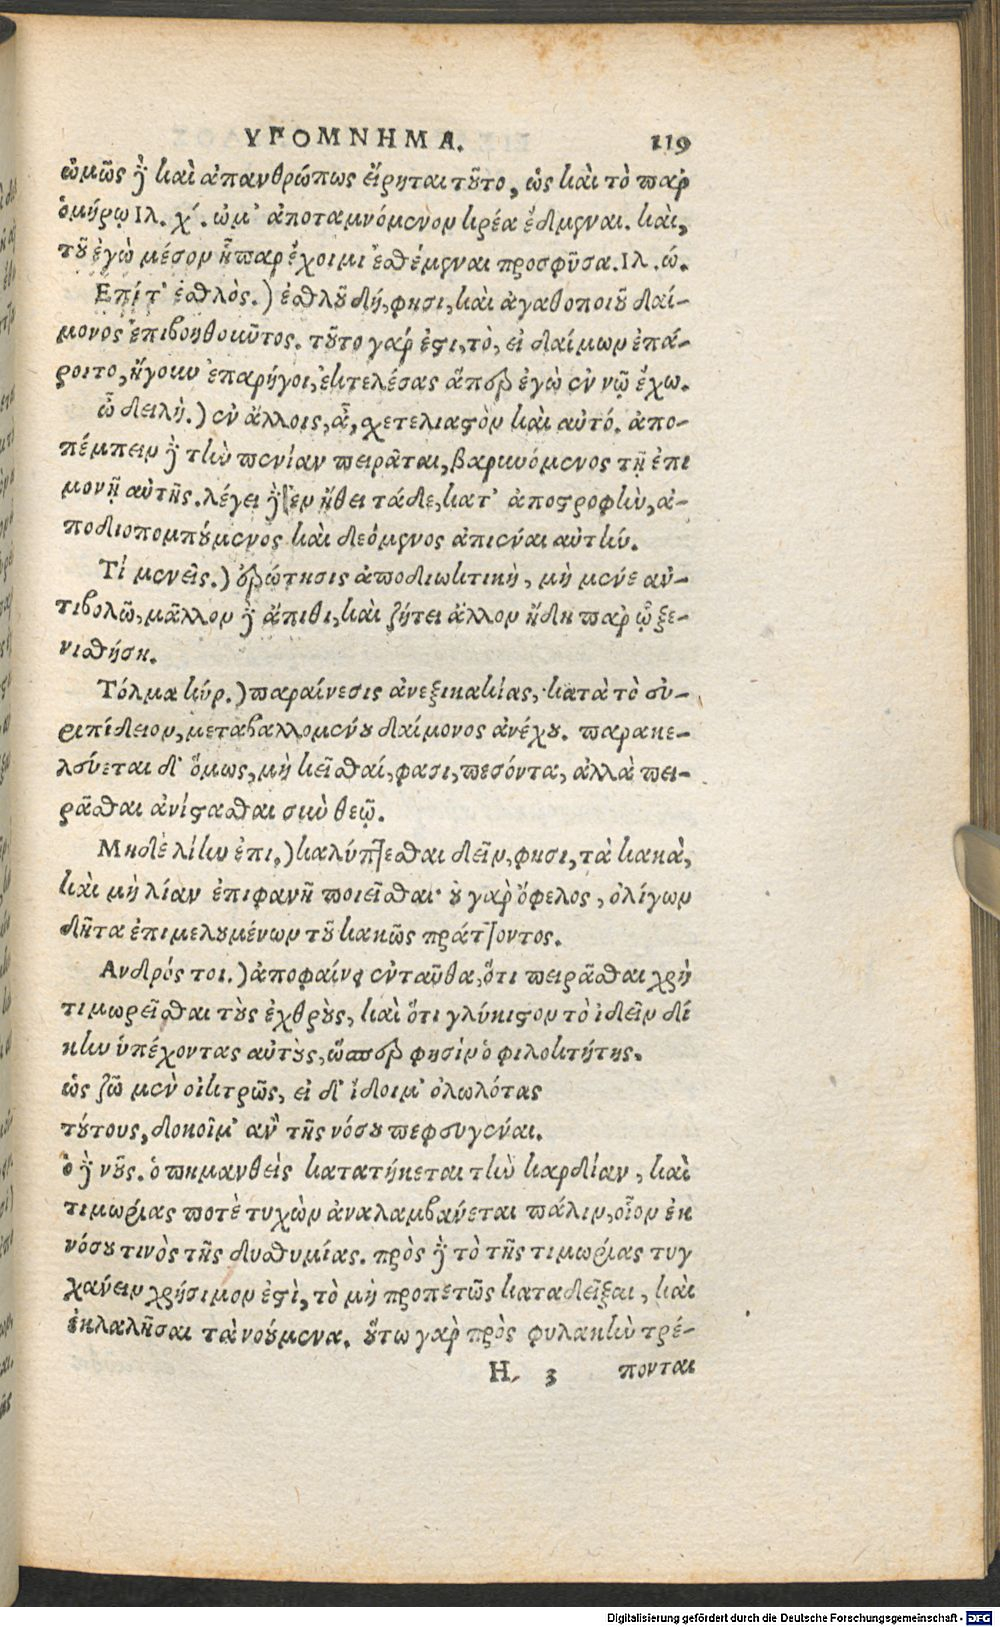 ΥΠΟΜΝΗΜΑ. 119
ὠμῶς δὲ καὶ ἀπανθρώπως εἴρηται τοῦτο, ὡς καὶ τὸ παρ
ὁμήρῳ Ιλ. χ΄. ὤμ' ἀποταμνόμενον κρέα ἔδμεναι. καὶ,
τοῦ ἐγὼ μέσον ἧπαρ ἔχοιμι ἐσθέμεναι προσφῦσα. Ιλ. ώ.
Επίτ' ἐσθλὸς.) ἐσθλοῦ δή, φησι, καὶ ἀγαθοποιοῦ δαί-
μονος ἐπιβοηθοῦντος. τοῦτο γάρ ἐστι, τὸ, εἰ δαίμων ἐπά-
ροιτο, ἤγουν ἐπαρήγοι, ἐκτελέσας ἅπερ ἐγὼ ἐν νῷ ἔχω.
ὦ δειλὴ.) ἐν ἄλλοις, ἆ, σχετελιαστὸν καὶ αὐτό. ἀπο-
πέμπειν δὲ τὴν πενίαν πειρᾶται, βαρυνόμενος τῇ ἐπι
μονῇ αὐτῆς. λέγει δὲ ἐν ἤθει τάδε, κατ' ἀποστροφὴν, ἀ-
ποδιοπομπούμενος καὶ δεόμενος ἀπιέναι αὐτήν.
Τί μένεις.) ἐρώτησις ἀποδιωκτικὴ, μὴ μένε ἀν-
τιβολῶ, μᾶλλον δὲ ἄπιθι, καὶ ζήτει ἄλλον ἤδη παρ' ᾧ ξε-
νισθήσῃ.
Τόλμα κύρ.) παραίνεσις ἀνεξικακίας, κατὰ τὸ εὐ-
ριπίδειον, μεταβαλλομένου δαίμονος ἀνέχου. παρακε-
λεύεται δ' ὅμως, μὴ κεῖσθαί, φασι, πεσόντα, ἀλλὰ πει-
ρᾶσθαι ἀνίστασθαι σὺν θεῷ.
Μηδὲ λίην ἐπι.) καλύπτεσθαι δεῖν, φησι, τὰ κακὰ,
καὶ μὴ λίαν ἐπιφανῆ ποιεῖσθαι· οὐ γὰρ ὄφελος, ὀλίγων
δῆτα ἐπιμελουμένων τοῦ κακῶς πράττοντος.
Ανδρός τοι.) ἀποφαίνει ἐνταῦθα, ὅτι πειρᾶσθαι χρὴ
τιμωρεῖσθαι τοὺς ἐχθροὺς, καὶ ὅτι γλύκιστον τὸ ἰδεῖν δί
κην ὑπέχοντας αὐτοὺς, ὥσπερ φησὶν ὁ φιλοκτήτης.
ὡς ζῶ μὲν οἰκτρῶς, εἰ δ' ἴδοιμ' ὀλωλότας
τούτους, δοκοῖμ' ἂν τῆς νόσου πεφευγέναι.
ὁ δὲ νοῦς. ὁ πημανθεὶς κατατήκεται τὴν καρδίαν, καὶ
τιμωρίας ποτὲ τυχὼν ἀναλαμβάνεται πάλιν, οἷον ἐκ
νόσου τινὸς τῆς δυσθυμίας. πρὸς δὲ τὸ τῆς τιμωρίας τυγ
χάνειν χρήσιμον ἐστὶ, τὸ μὴ προπετῶς καταδεῖξαι, καὶ
ἐκλαλῆσαι τὰ νοούμενα. οὕτω γὰρ πρὸς φυλακὴν τρέ-
H 3 πονται
Digitalisierung gefördert durch die Deutsche Forschungsgemeinschaft - DFG